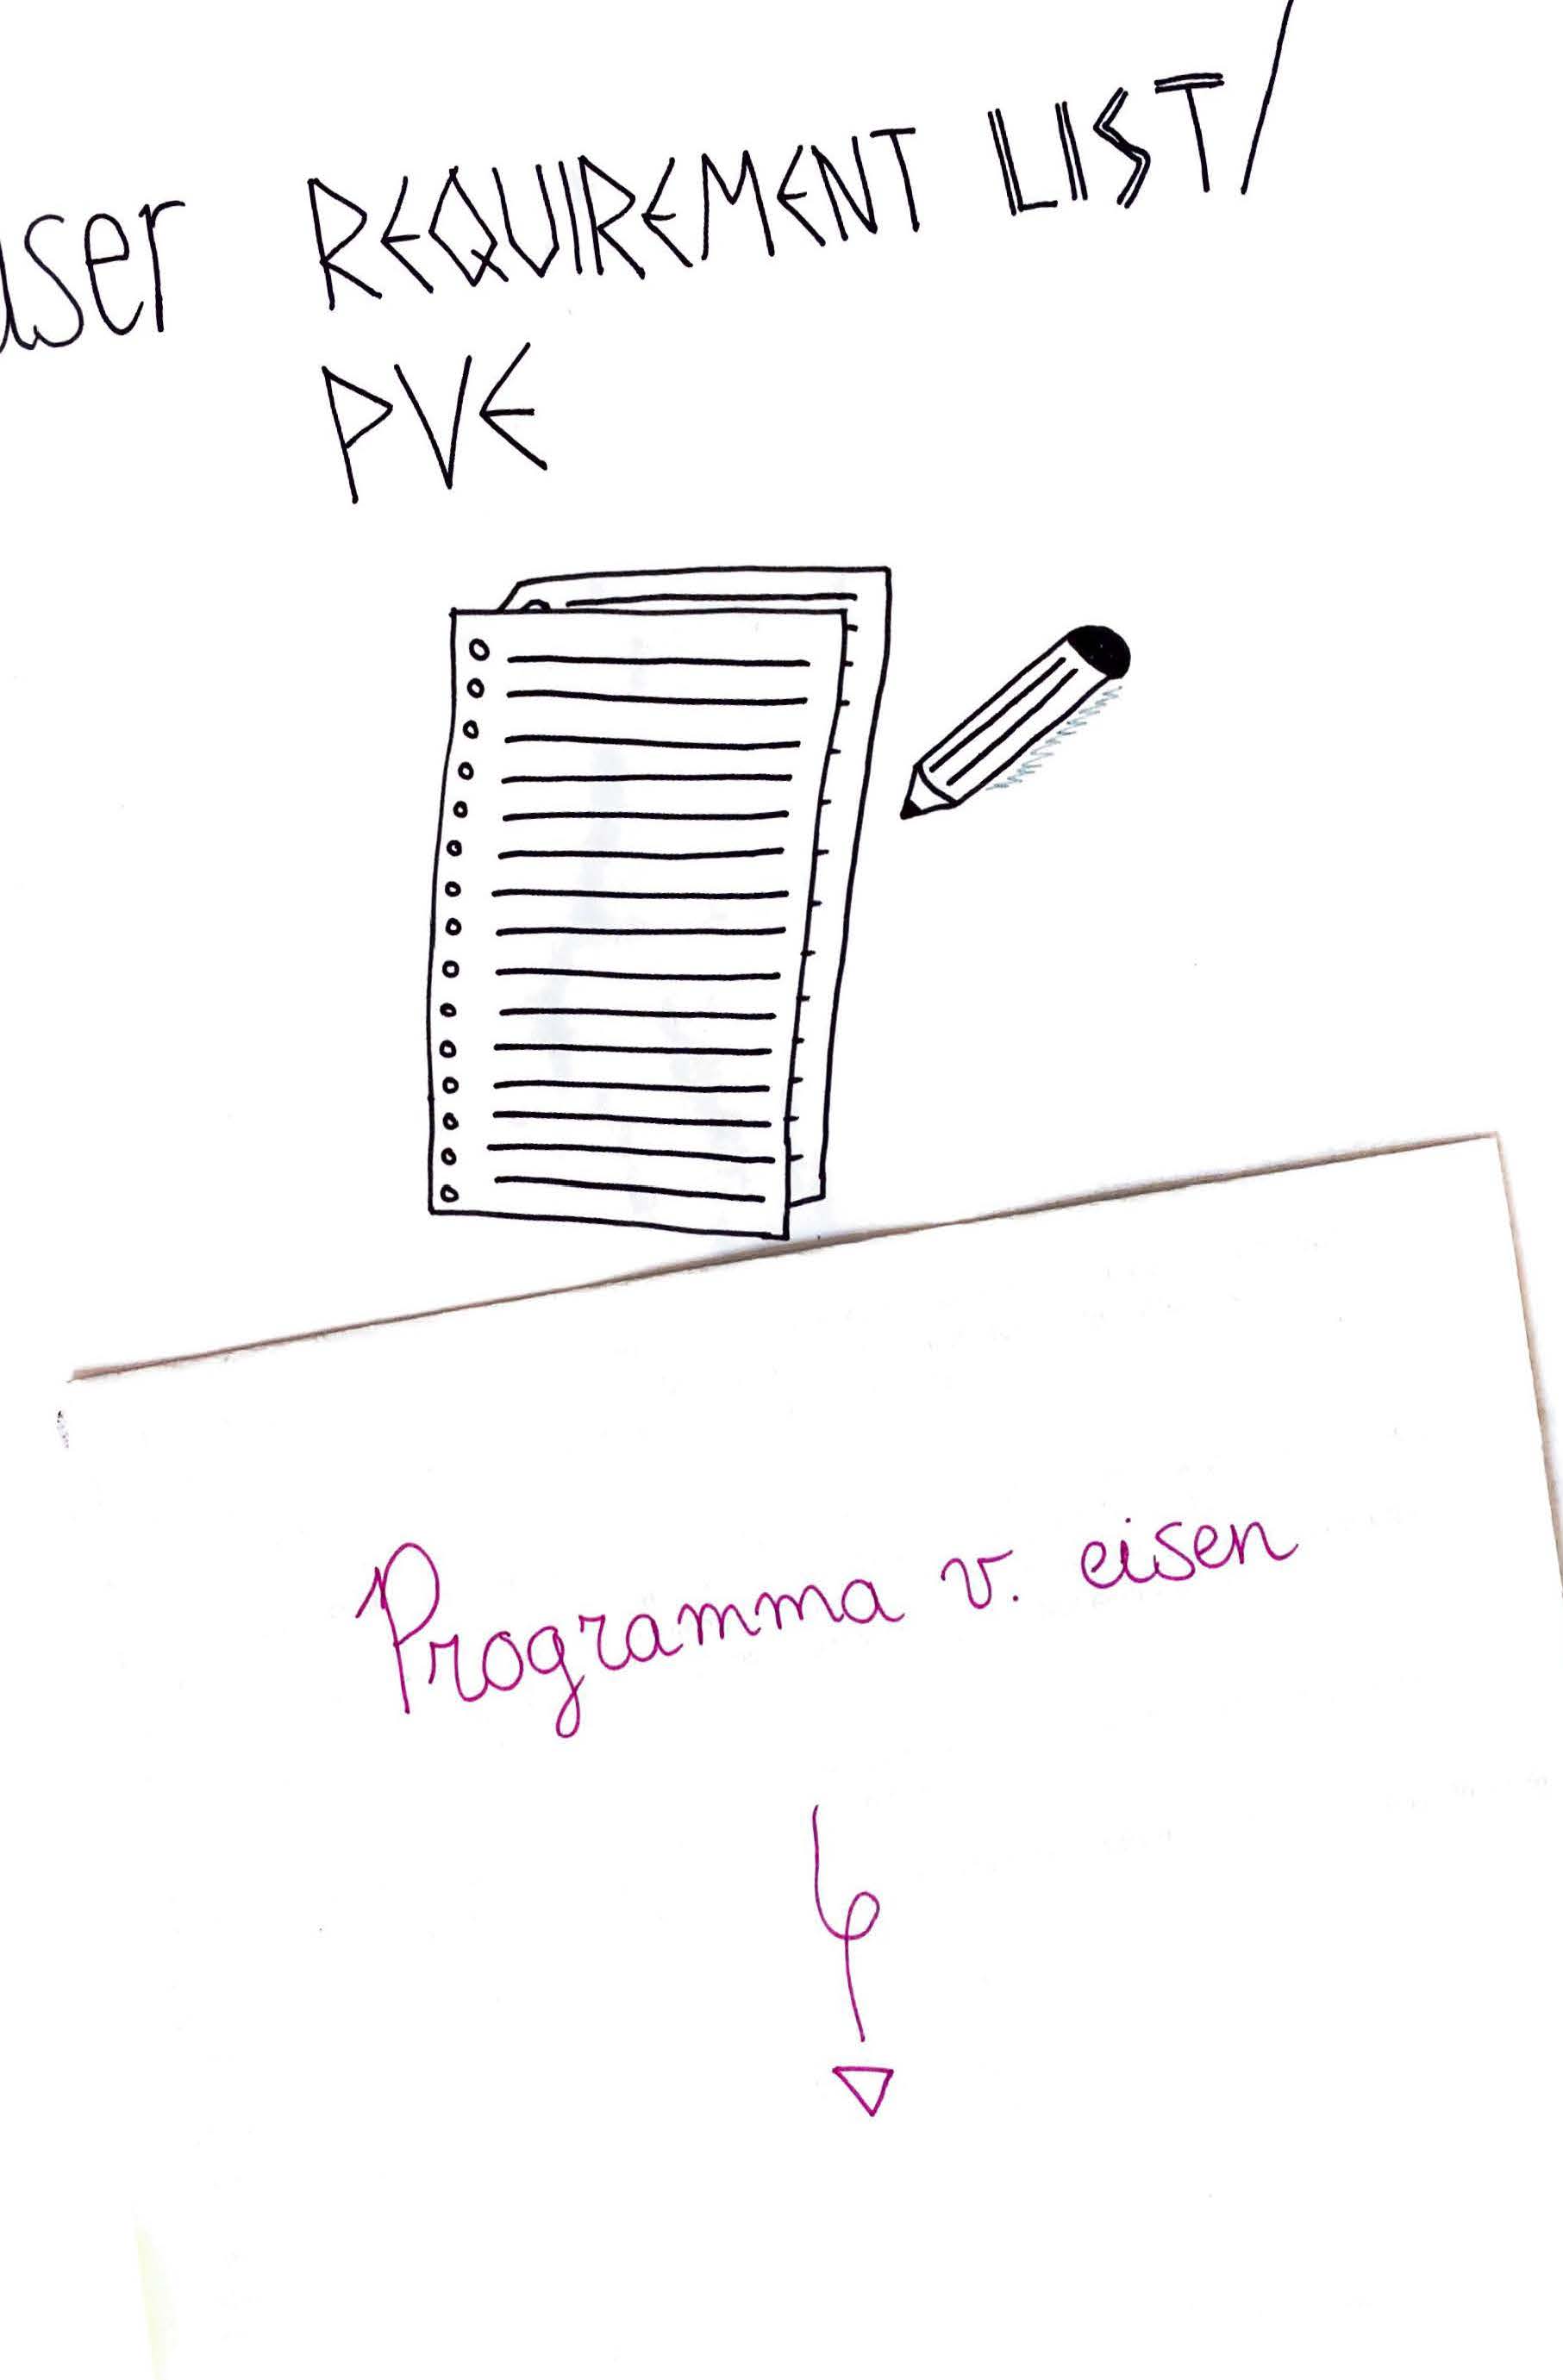 user REQUIREMENT LIST/
PVE
Programma v. eisen